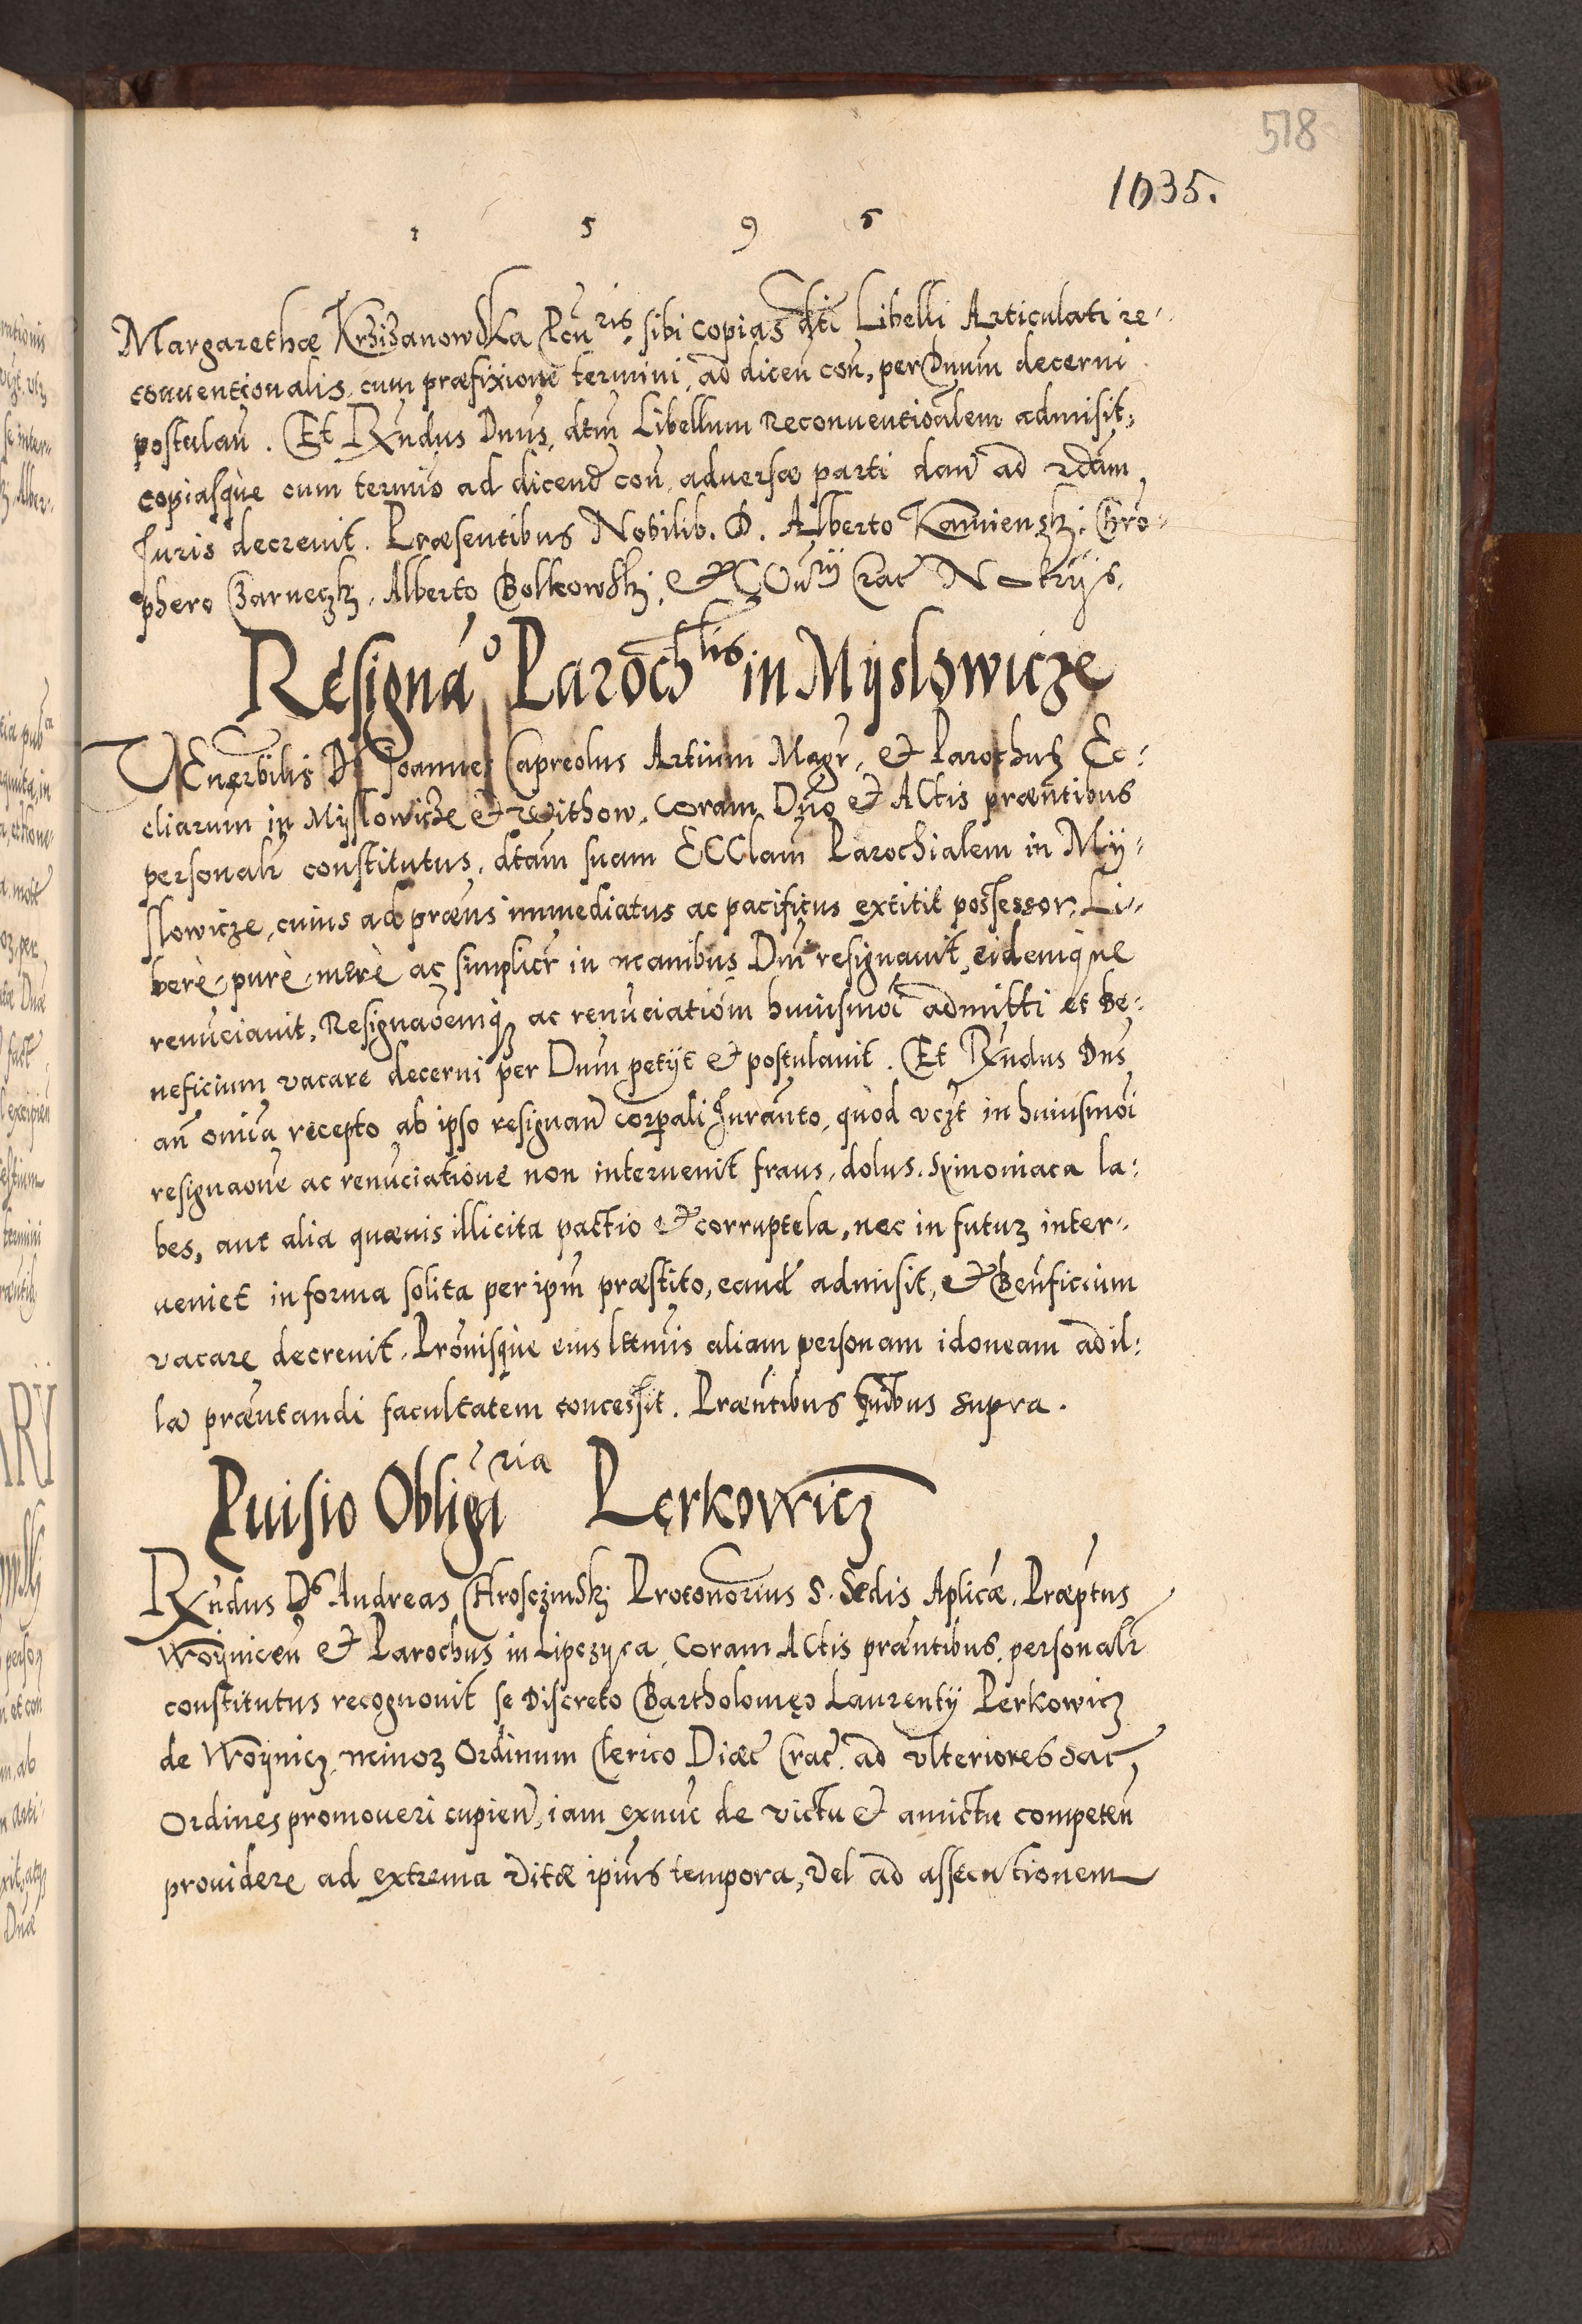 518
1035.
1 5 9 5
Margarethæ Krzizanowska Pcuris. sibi copias dti Libelli Articulati re-
conuentionalis, cum præfixione termini, ad dicen con, per Dnum decerni
postulan. Et Rndus Dnus, dtm Libellum Reconuentionalem admisit,
copiasque cum termis ad dicend con, aduersæ parti dan ad rdam
Juris decreuit. Præsentibus Nobilib. D. Alberto Kamiensky, Chro-
phero Czarneczky, Alberto Bolkowsky, et
Resignao Parochlis in Myslowicze
VEnerbilis Ds Joannes Capreolus Artium Magr, et Parochus Ec-
cliarum in Myslowicze et Withow, Coram Dno et Actis præntibus
personalr constitutus, dtam suam ECClam Parochialem in My-
slowicze, cuius ad præns immediatus ac pacificus extitit possessor, Li-
berè, purè, merè ac simplicr in manibus Dni resignauit, eidemque
renunciauit, Resignaoemq ac renunciationem huiusmoi admitti et be-
neficium vacare decerni per Dnum petijt et postulauit. Et Rndus Dns
an omnia recepto ab ipso resignan corpali Juranto, quòd vczt in huiusmoi
resignaone ac renunciatione non interuenit fraus, dolus, Symoniaca la-
bes, aut alia quæuis illicita pactio et corruptela, nec in futuz inter-
ueniet in forma solita per ipm præstito, eand admisit, et Benficium
vacare decreuit, Pronisque eius ltimis aliam personam idoneam ad il-
la præntandi facultatem concessit. Præntibus quibus supra.
Puisio Obligaria Perkowicz
Rndus Ds Andreas Chrosczinsky Protonorius S. Sedis Aplicæ, Præptus
Woynicen et Parochus in Lipczyca, Coram Actis præntibus, personalr
constitutus recognouit se Discreto Bartholomęo Laurentij Perkowicz
de Woynicz, minoz Ordinum Clerico Diæc Crac. ad vlteriores sac,
Ordines promoueri cupien, iam exnuc de victu et amictu competen
prouidere ad extrema vitæ ipius tempora, vel ad assecutionem